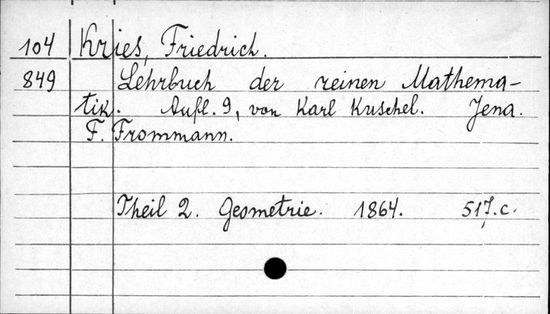 104 Kries, Friedrich.
849 Lehrbuch der reinen Mathema-
tik. Aufl. 9, von Karl Kuschel. Jena.
F. Frommann.
Theil 2. Geometrie. 1864. 517.c.